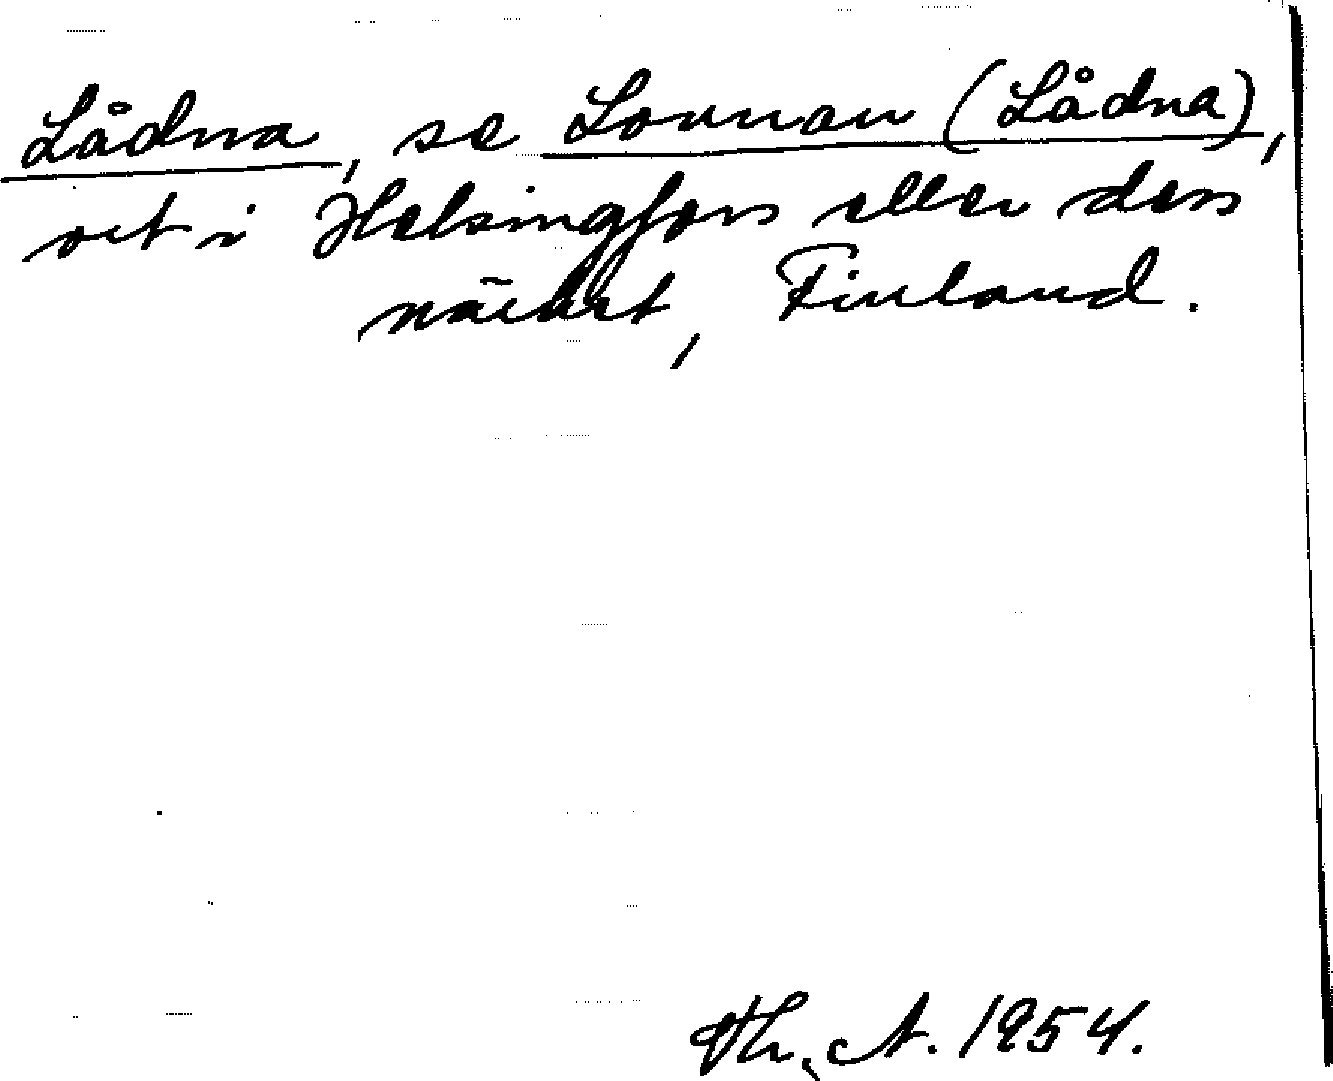 Lådna, se Lounan (Lådna),
ort i Helsingfors eller dess
närhet, Finland.
Th. A. 1954.